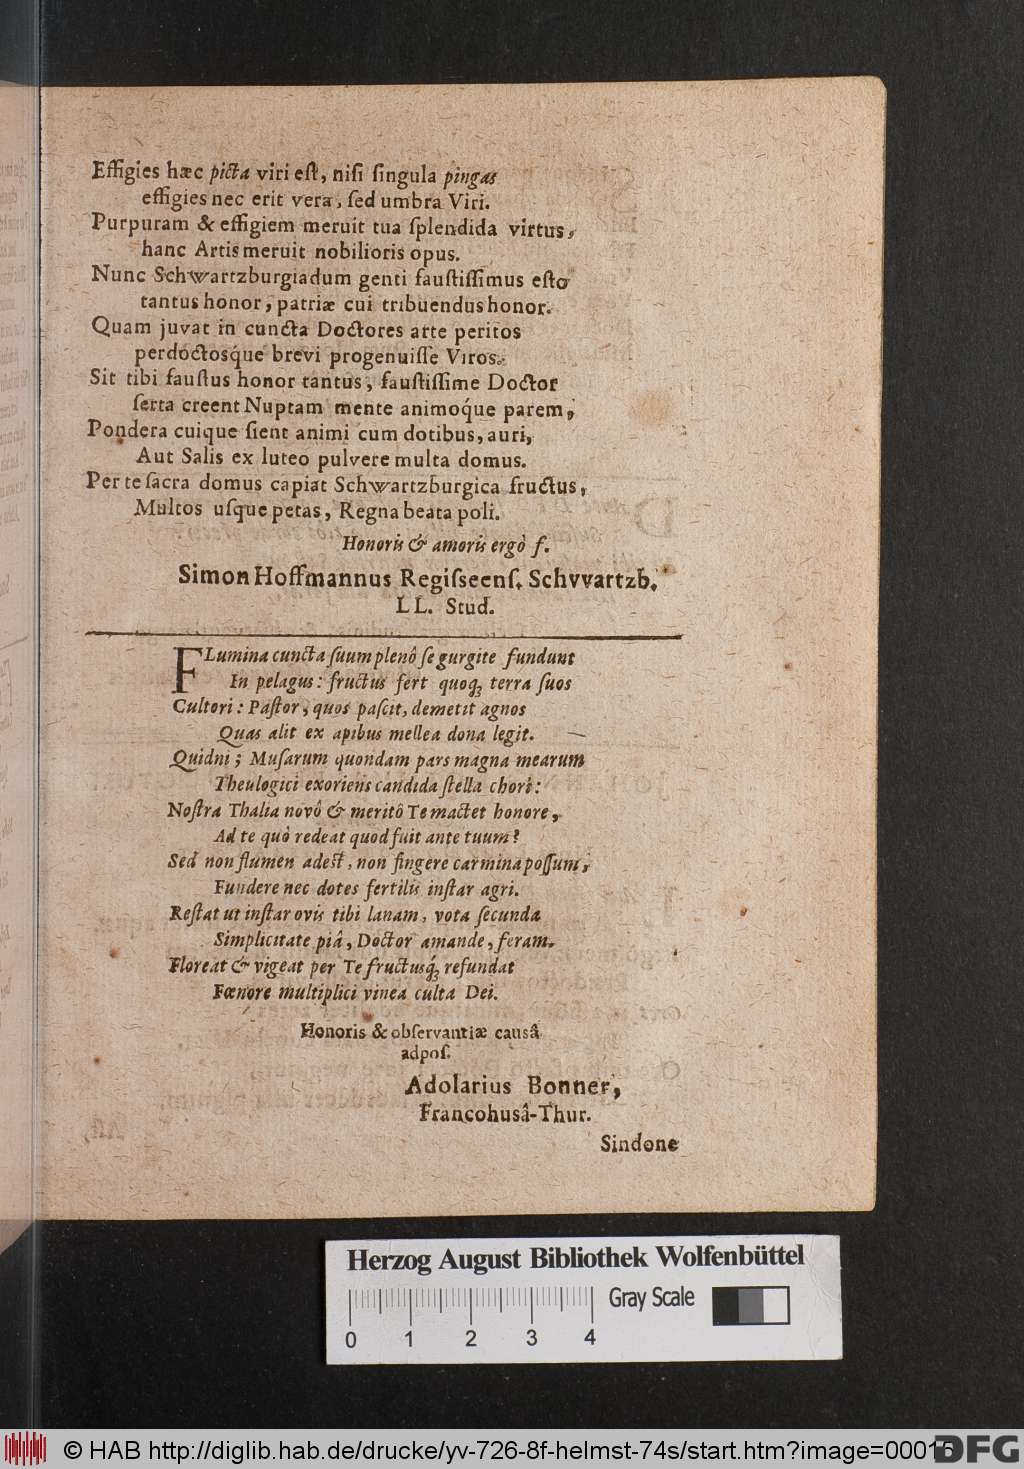 Effigies hæc picta viri eſt, niſi ſingula pingas
effigies nec erit vera, ſed umbra Viri.
Purpuram & effigiem meruit tua ſplendida virtus,
hanc Artis meruit nobilioris opus.
Nunc Schwartzburgiadum genti fauſtiſſimus eſto
tantus honor, patriæ cui tribuendus honor.
Quam juvat in cuncta Doctores arte peritos
perdoctosq́ue brevi progenuiſſe Viros.
Sit tibi fauſtus honor tantus, fauſtiſſime Doctor
ſerta creent Nuptam mente animoq́ue parem,
Pondera cuique ſient animi cum dotibus, auri,
Aut Salis ex luteo pulvere multa domus.
Per te ſacra domus capiat Schwartzburgica fructus,
Multos uſque petas, Regna beata poli.
Honoris & amoris ergò f.
Simon Hoffmannus Regiſseenſ. Schvvartzb.
LL. Stud.
FLumina cuncta ſuum plenô ſe gurgite fundunt
In pelagus: fructus fert quoq; terra ſuos
Cultori: Paſtor, quos paſcit, demetit agnos
Quas alit ex apibus mellea dona legit.
Quidni; Muſarum quondam pars magna mearum
Theulogici exoriens candida ſtella chori:
Noſtra Thalia novô & meritô Te mactet honore,
Ad te quò redeat quod fuit ante tuum?
Sed non flumen adeſt, non fingere carmina poſſum,
Fundere nec dotes fertilis inſtar agri.
Reſtat ut inſtar ovis tibi lanam, vota ſecunda
Simplicitate piâ, Doctor amande, feram.
Floreat & vigeat per Te fructusq́; refundat
Fœnore multiplici vinea culta Dei.
Honoris & obſervantiæ causâ
adpoſ.
Adolarius Bonner,
Francohusâ-Thur.
Sindone
Herzog August Bibliothek Wolfenbüttel
Gray Scale
0 1 2 3 4
© HAB http://diglib.hab.de/drucke/yv-726-8f-helmst-74s/start.htm?image=00015
DFG